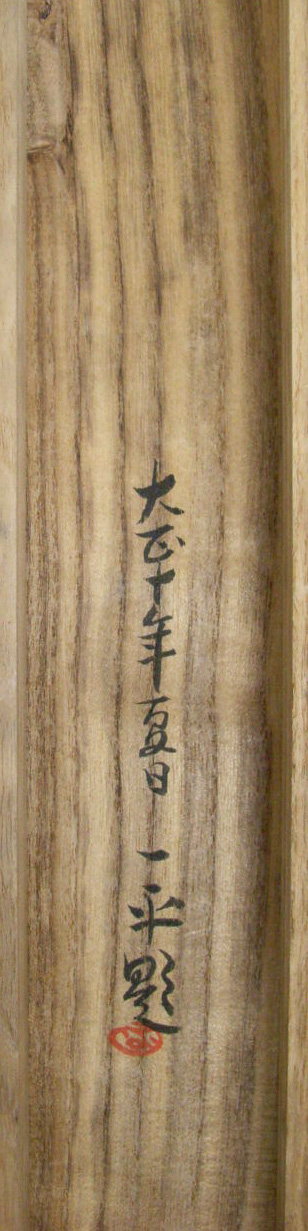 大正十年夏日 一平題